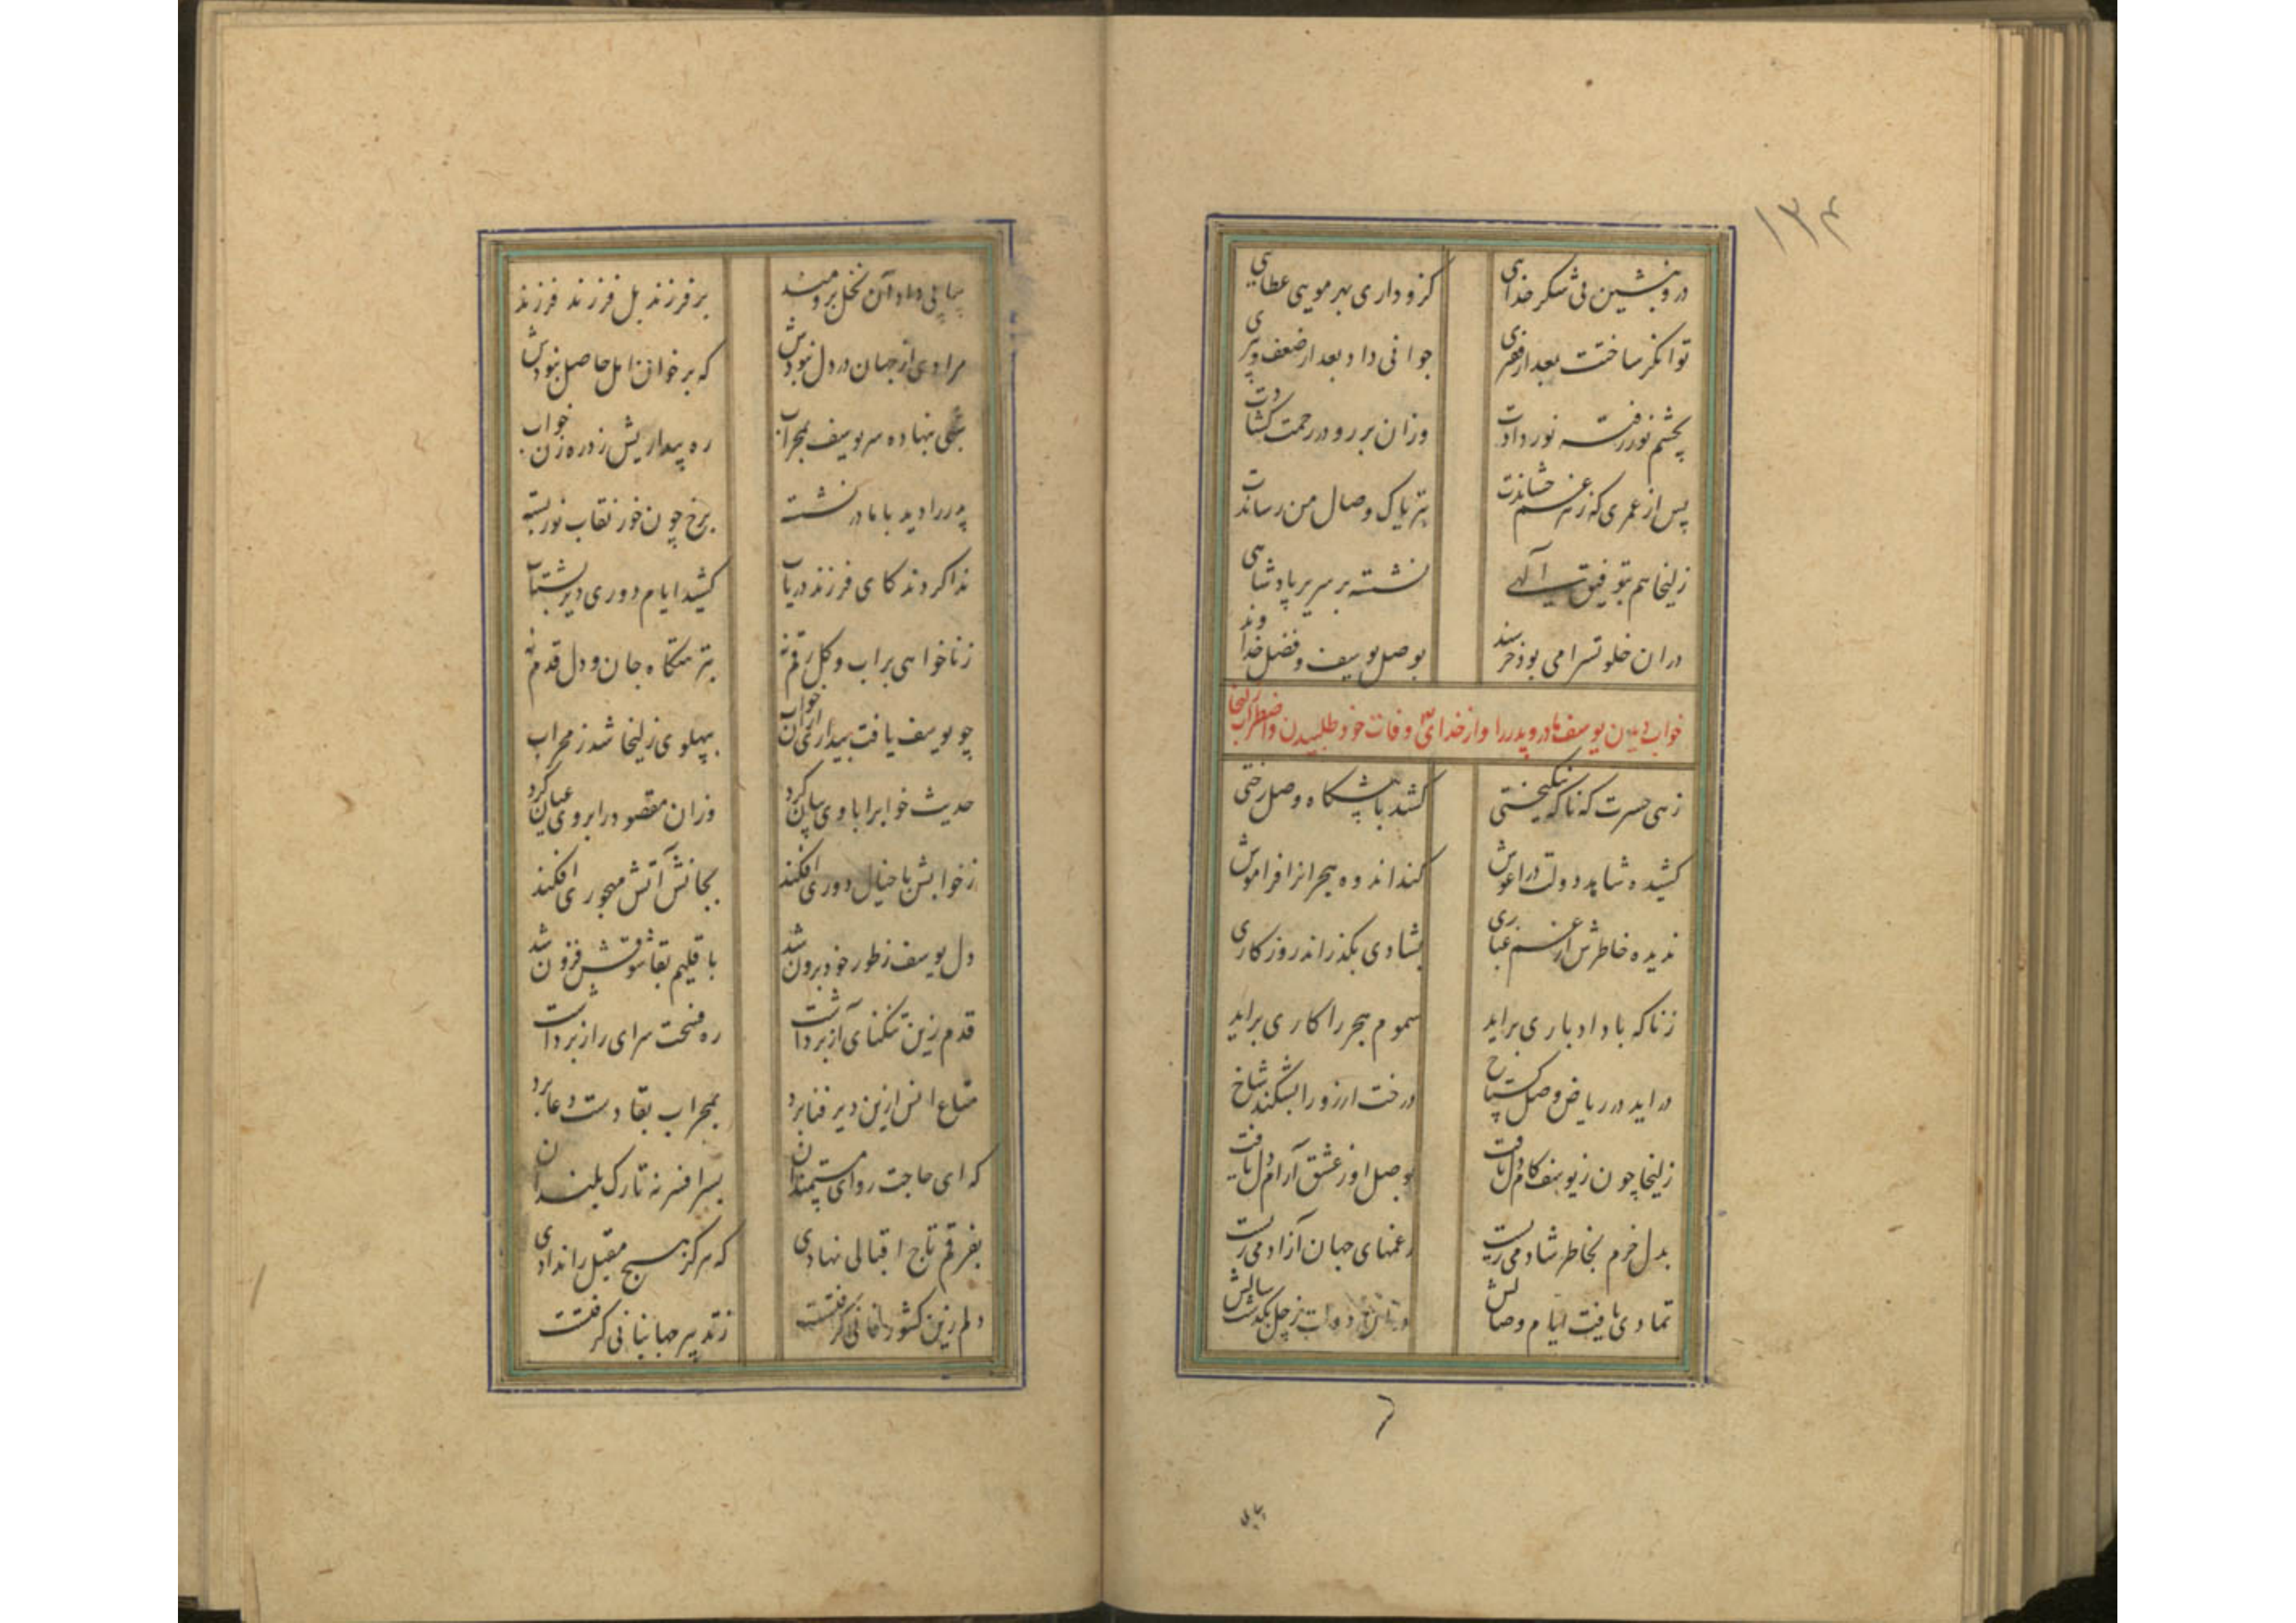 ۱۳۴
درو بنشین پی شکر خدایی کزو داری بهر مویی عطایی
توانگر ساختت بعد از فقیری جوانی داد بعد از ضعف و پیری
بچشم نور رفته نور دادت وزان بر رو در رحمت گشادت
پس از عمری که زهر غم چشاندت بتریاک وصال من رساندت
زلیخا هم بتوفیق الهی نشسته بر سریر پادشاهی
دران خلوتسرا می بود خرسند بوصل یوسف و فضل خداوند
خواب دیدن یوسف مادر و پدر را و از خدای وفات خود طلبیدن و اضطراب زلیخا
زهی حسرت که ناگه نیکبختی کشد با پیشگاه وصل رختی
کشیده شاهد دولت در آغوش کند اندوه هجران را فراموش
ندیده خاطرش از غم غباری بشادی بگذراند روزگاری
زناگه باد ادباری براید سموم هجر را کاری براید
دراید در ریاض وصل گستاخ درخت ارزو را بشکند شاخ
زلیخا چون ز یوسف کام دل یافت بوصل او ز عشق آرام دل یافت
بدل خرم بخاطر شاد می زیست ز غمهای جهان آزاد می زیست
تمادی یافت ایام وصالش در دولت ز چل بگذشت سالش
پیاپی
پیاپی داد آن نخل برومند بر فرزند بل فرزند فرزند
مرادی از جهان در دل نبودش که بر خوان امل حاصل نبودش
شبی نهاده سر یوسف بمحراب ره بیداریش زد ره زن خواب
پدر را دید با مادر نشسته برخ چون خور نقاب نور بسته
ندا کردند کای فرزند دریاب کشید ایام دوری دیر بشتاب
زنا خواهی براب و گل رقم نه بنزهتگاه جان و دل قدم نه
چو یوسف یافت بیداری ازان خواب بپهلوی زلیخا شد ز محراب
حدیث خوابرا با وی بیان کرد وزان مقصود را بر وی عیان کرد
زخوابش با خیال دوری افکند بجانش آتش مهجوری افکند
دل یوسف ز طور خود برون شد باقلیم بقا شوقش فزون شد
قدم زین تنگنای آز برداشت ره فسحت سرای راز برداشت
متاع انس ازین دیر فنا برد بمحراب بقا دست دعا برد
که ای حاجت روای مستمندان بسر افسر نه تارک بلندان
بفرقم تاج اقبالی نهادی که هرگز هیچ مقبل را ندادی
دلم زین کشور فانی گرفتت ز تدبیر جهانبانی گرفتت